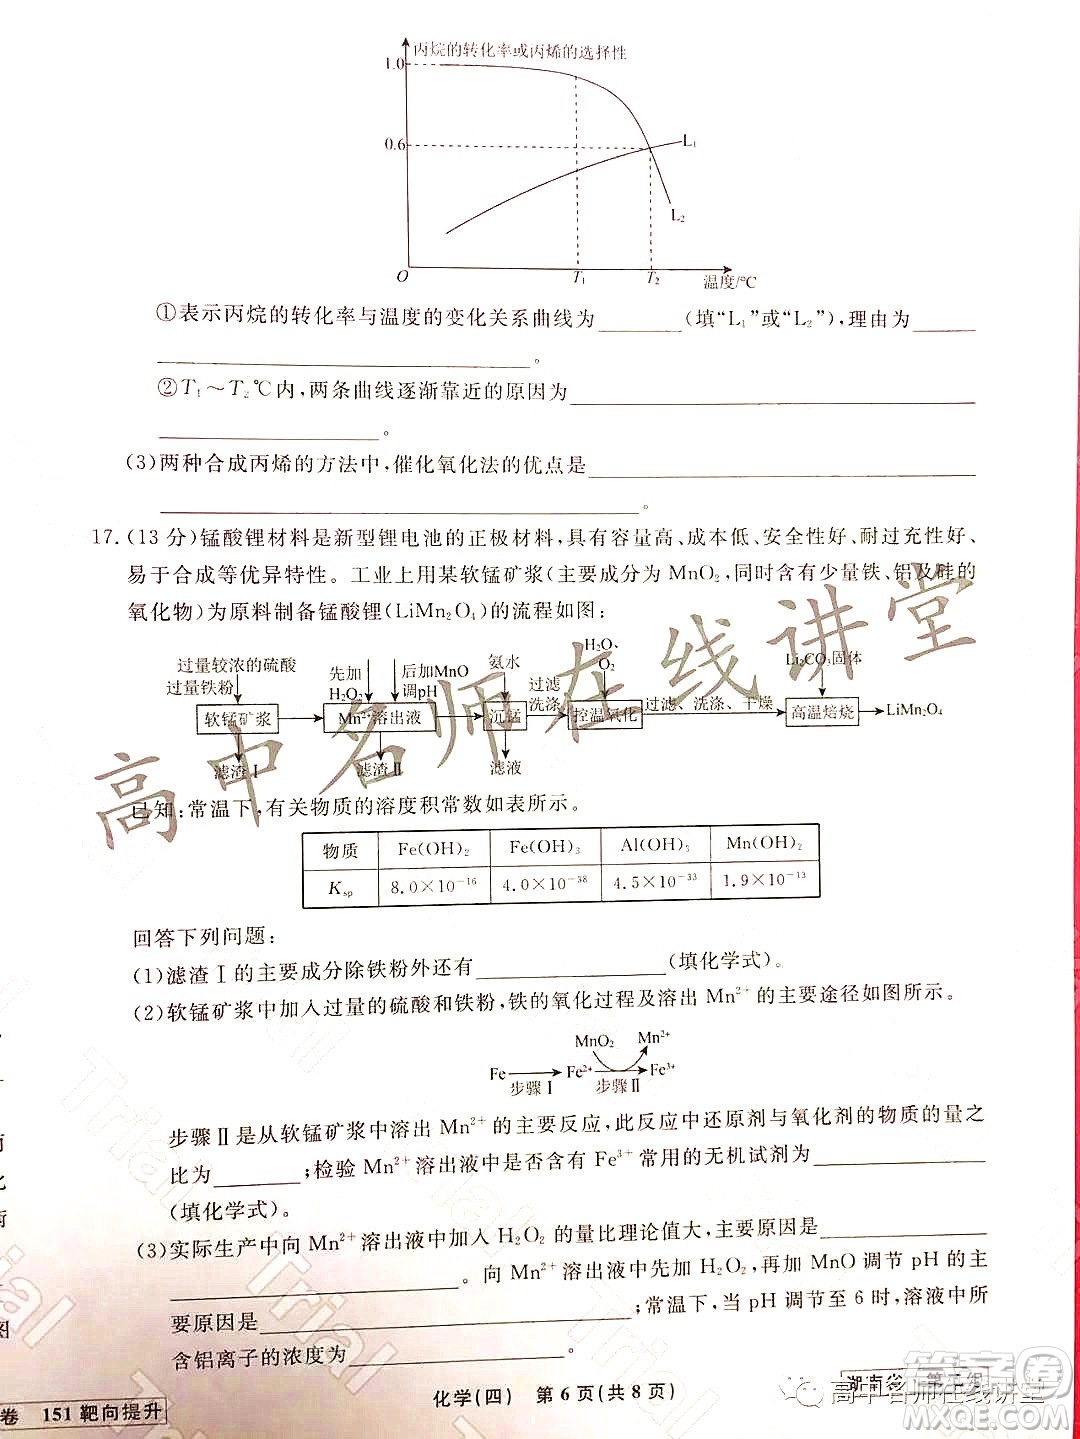 丙烷的转化率或丙烯的选择性
1.0
0.6
L₁
L₂
O
T₁
T₂
温度/℃
①表示丙烷的转化率与温度的变化关系曲线为________(填“L₁”或“L₂”),理由为______
______________________________。
②T₁～T₂℃内,两条曲线逐渐靠近的原因为______________________________
__________________。
(3)两种合成丙烯的方法中,催化氧化法的优点是______________________________
______________________________。
17.(13分)锰酸锂材料是新型锂电池的正极材料,具有容量高、成本低、安全性好、耐过充性好、
易于合成等优异特性。工业上用某软锰矿浆(主要成分为MnO₂,同时含有少量铁、铝及硅的
氧化物)为原料制备锰酸锂(LiMn₂O₄)的流程如图:
过量较浓的硫酸
过量铁粉
先加
H₂O₂
后加MnO
调pH
氨水
过滤
洗涤
H₂O、
O₂
Li₂CO₃固体
软锰矿浆
Mn²⁺溶出液
沉锰
控温氧化
过滤、洗涤、干燥
高温焙烧
LiMn₂O₄
滤渣Ⅰ
滤渣Ⅱ
滤液
已知:常温下,有关物质的溶度积常数如表所示。
物质 Fe(OH)₂ Fe(OH)₃ Al(OH)₃ Mn(OH)₂
Ksp 8.0×10⁻¹⁶ 4.0×10⁻³⁸ 4.5×10⁻³³ 1.9×10⁻¹³
回答下列问题:
(1)滤渣Ⅰ的主要成分除铁粉外还有____________(填化学式)。
(2)软锰矿浆中加入过量的硫酸和铁粉,铁的氧化过程及溶出Mn²⁺的主要途径如图所示。
MnO₂
Mn²⁺
Fe
步骤Ⅰ
Fe²⁺
步骤Ⅱ
Fe³⁺
步骤Ⅱ是从软锰矿浆中溶出Mn²⁺的主要反应,此反应中还原剂与氧化剂的物质的量之
比为________;检验Mn²⁺溶出液中是否含有Fe³⁺常用的无机试剂为______________
(填化学式)。
(3)实际生产中向Mn²⁺溶出液中加入H₂O₂的量比理论值大,主要原因是______________
________________________。向Mn²⁺溶出液中先加H₂O₂,再加MnO调节pH的主
要原因是______________________________;常温下,当pH调节至6时,溶液中所
含铝离子的浓度为__________。
化学(四) 第6页(共8页)
湖南省
卷 151靶向提升
高中名师在线讲堂
高中名师在线讲堂
答案圈
Trial
Trial
Trial